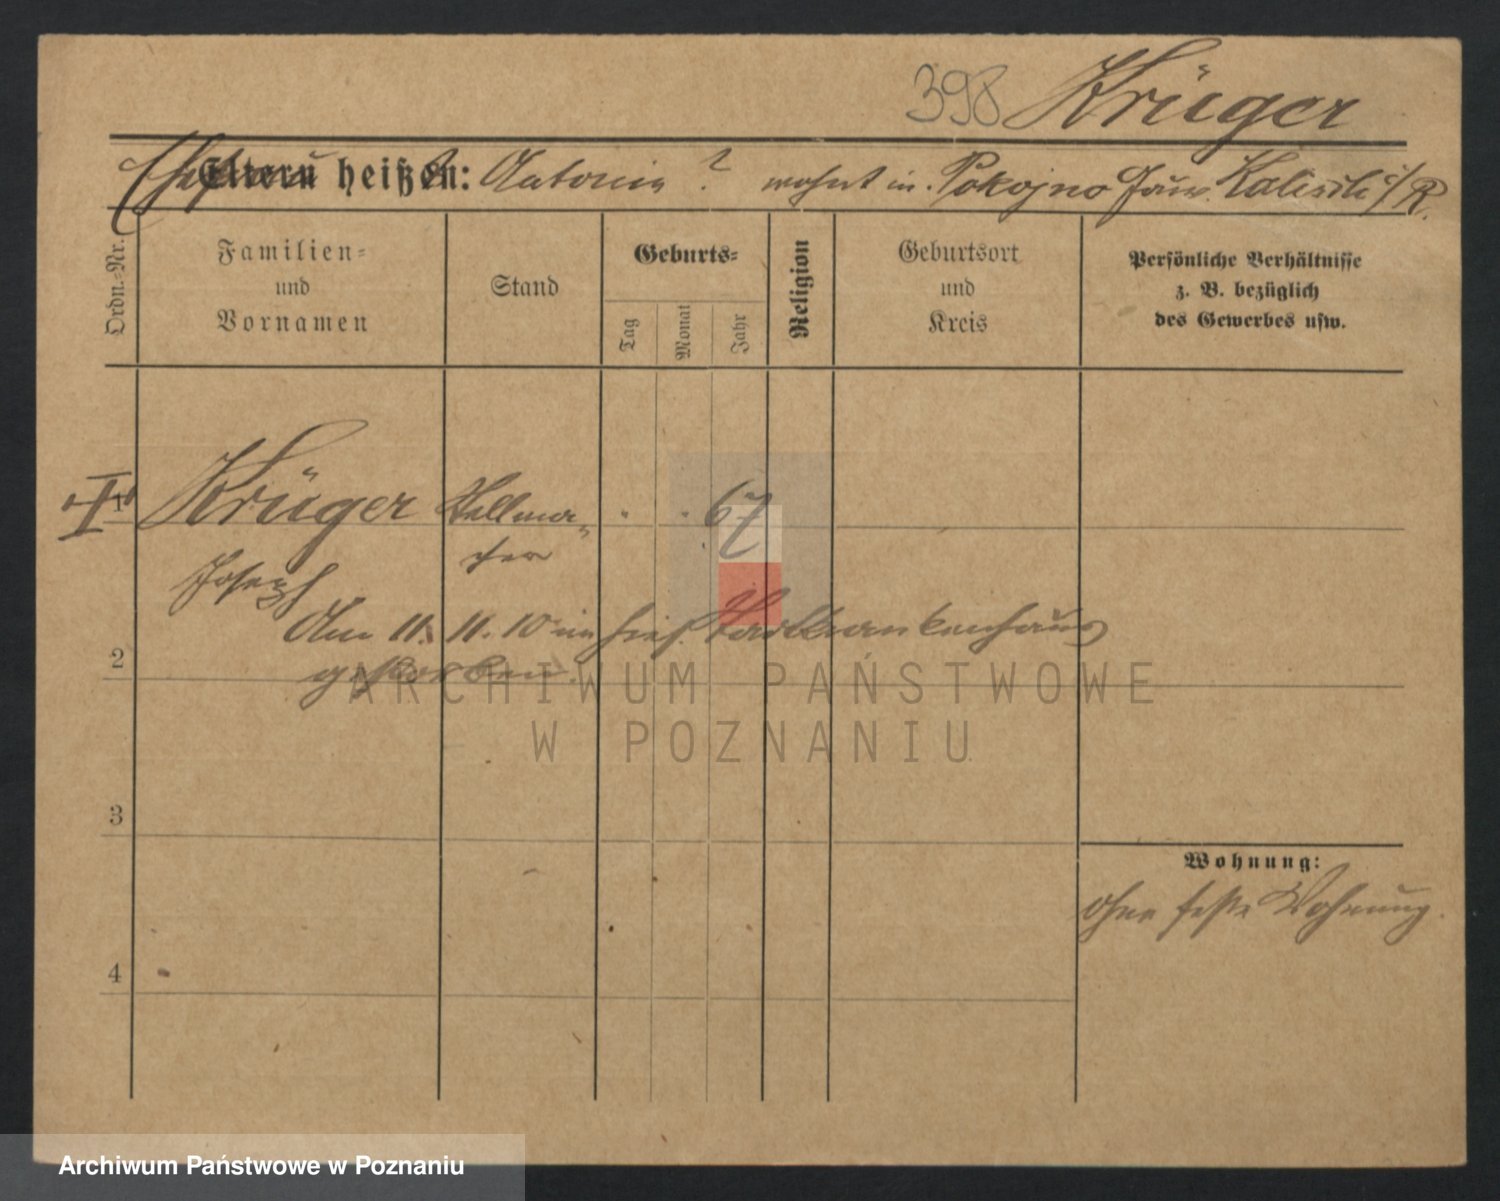 398 Krüger
Eltern heißen: Antonia ? wohnt in Pokojno Gouv. Kalisch i/R.
Ordn.-Nr.
Familien-
und
Vornamen
Stand
Geburts-
Tag
Monat
Jahr
Religion
Geburtsort
und
Kreis
Persönliche Verhältnisse
z. B. bezüglich
des Gewerbes usw.
1 Krüger Stellma- 67
cher
Joseph
Am 11. 11. 10 im hies. Stadtkrankenhaus
2
gestorben.
ARCHIWUM PAŃSTWOWE
W POZNANIU
3
Wohnung:
ohne feste Wohnung.
4
Archiwum Państwowe w Poznaniu